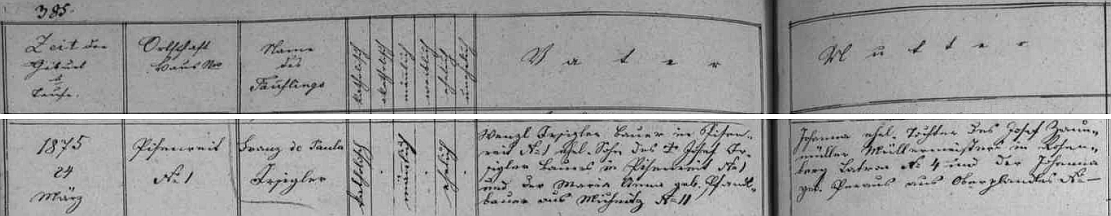 385.
Zeit der
Geburt
Taufe.
Ortschaft
Haus No
Name
des
Täuflings
katholisch
männlich
weiblich
ehelich
unehelich
Vater
Mutter
1875
24
März
Pisenreit
No 1
Franz de Paula
katholisch
männlich
ehelich
Wenzl Bauer in Pisen-
reit No 1 ehel. Sohn des Josef
Bauers in Pisenreit No 1
und der Maria Anna geb.
bauer aus No 11
Johanna ehel. Tochter des Josef
müller Müllermeisters in Rosen-
berg Latron No 4 und der Johanna
geb. aus Oberplandles No –